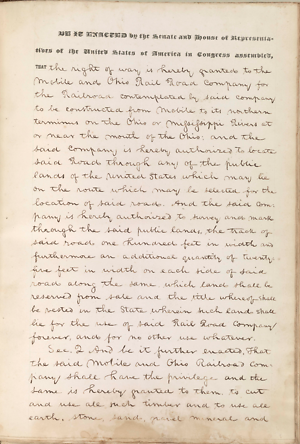 BE IT ENACTED by the Senate and House of Representa-
tives of the United States of America in Congress assembled,
THAT the right of way is hereby granted to the
Mobile and Ohio Rail Road Company for
the Railroad contemplated by said company
to be constructed from Mobile to its northern
terminus on the Ohio or Mississippi Rivers at
or near the mouth of the Ohio; and the
said Company is hereby authorized to locate
said Road through any of the public
lands of the United States which may lie
on the route which may be selected for the
location of said road. And the said Com-
pany is hereby authorized to survey and mark
through the said public lands, the track of
said road one hundred feet in width and
furthermore an additional quantity of twenty-
five feet in width on each side of said
road along the same which land shall be
reserved from sale and the title whereof shall
be vested in the State wherein such land shall
lie for the use of said Rail Road Company
forever, and for no other use whatever.
Sec. 2. And be it further enacted, That
the said Mobile and Ohio Railroad Com-
pany shall have the privilege and the
same is hereby granted to them to cut
and use all such timber and to use all
earth, stone, sand, mineral and